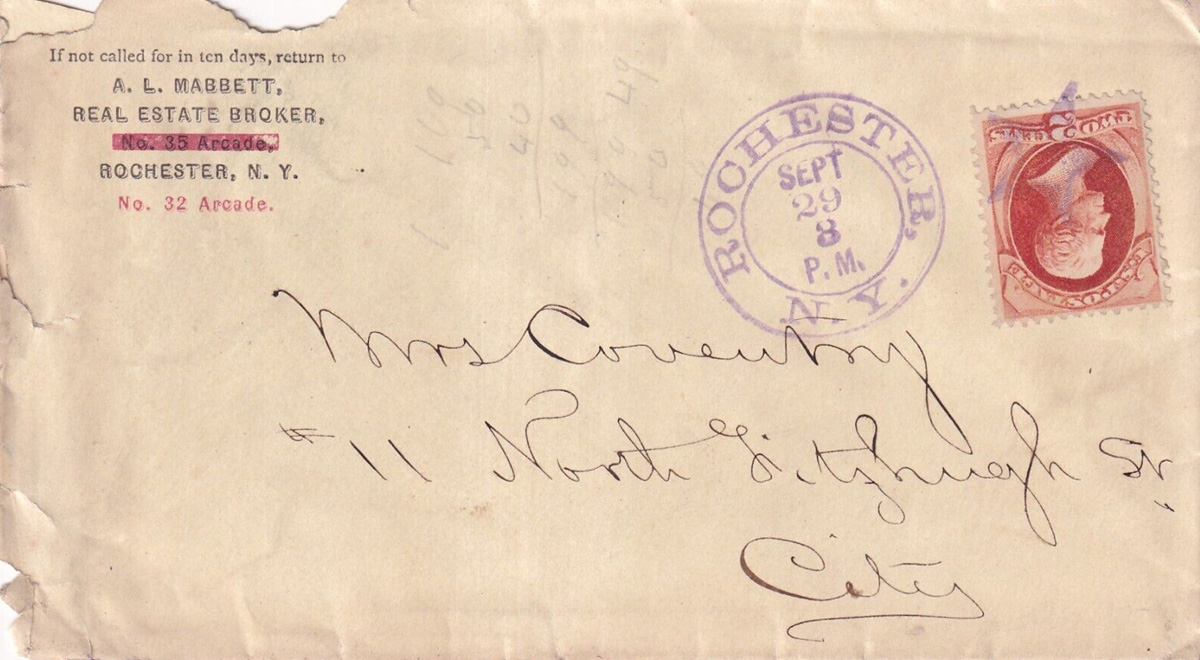 If not called for in ten days, return to
A. L. MABBETT,
REAL ESTATE BROKER,
No. 35 Arcade,
ROCHESTER, N. Y.
No. 32 Arcade.
ROCHESTER, N. Y.
SEPT
29
8
P. M.
U.S. POSTAGE
TWO 2 CENTS
Mrs Coventry
# 11 North Fitzhugh St,
City